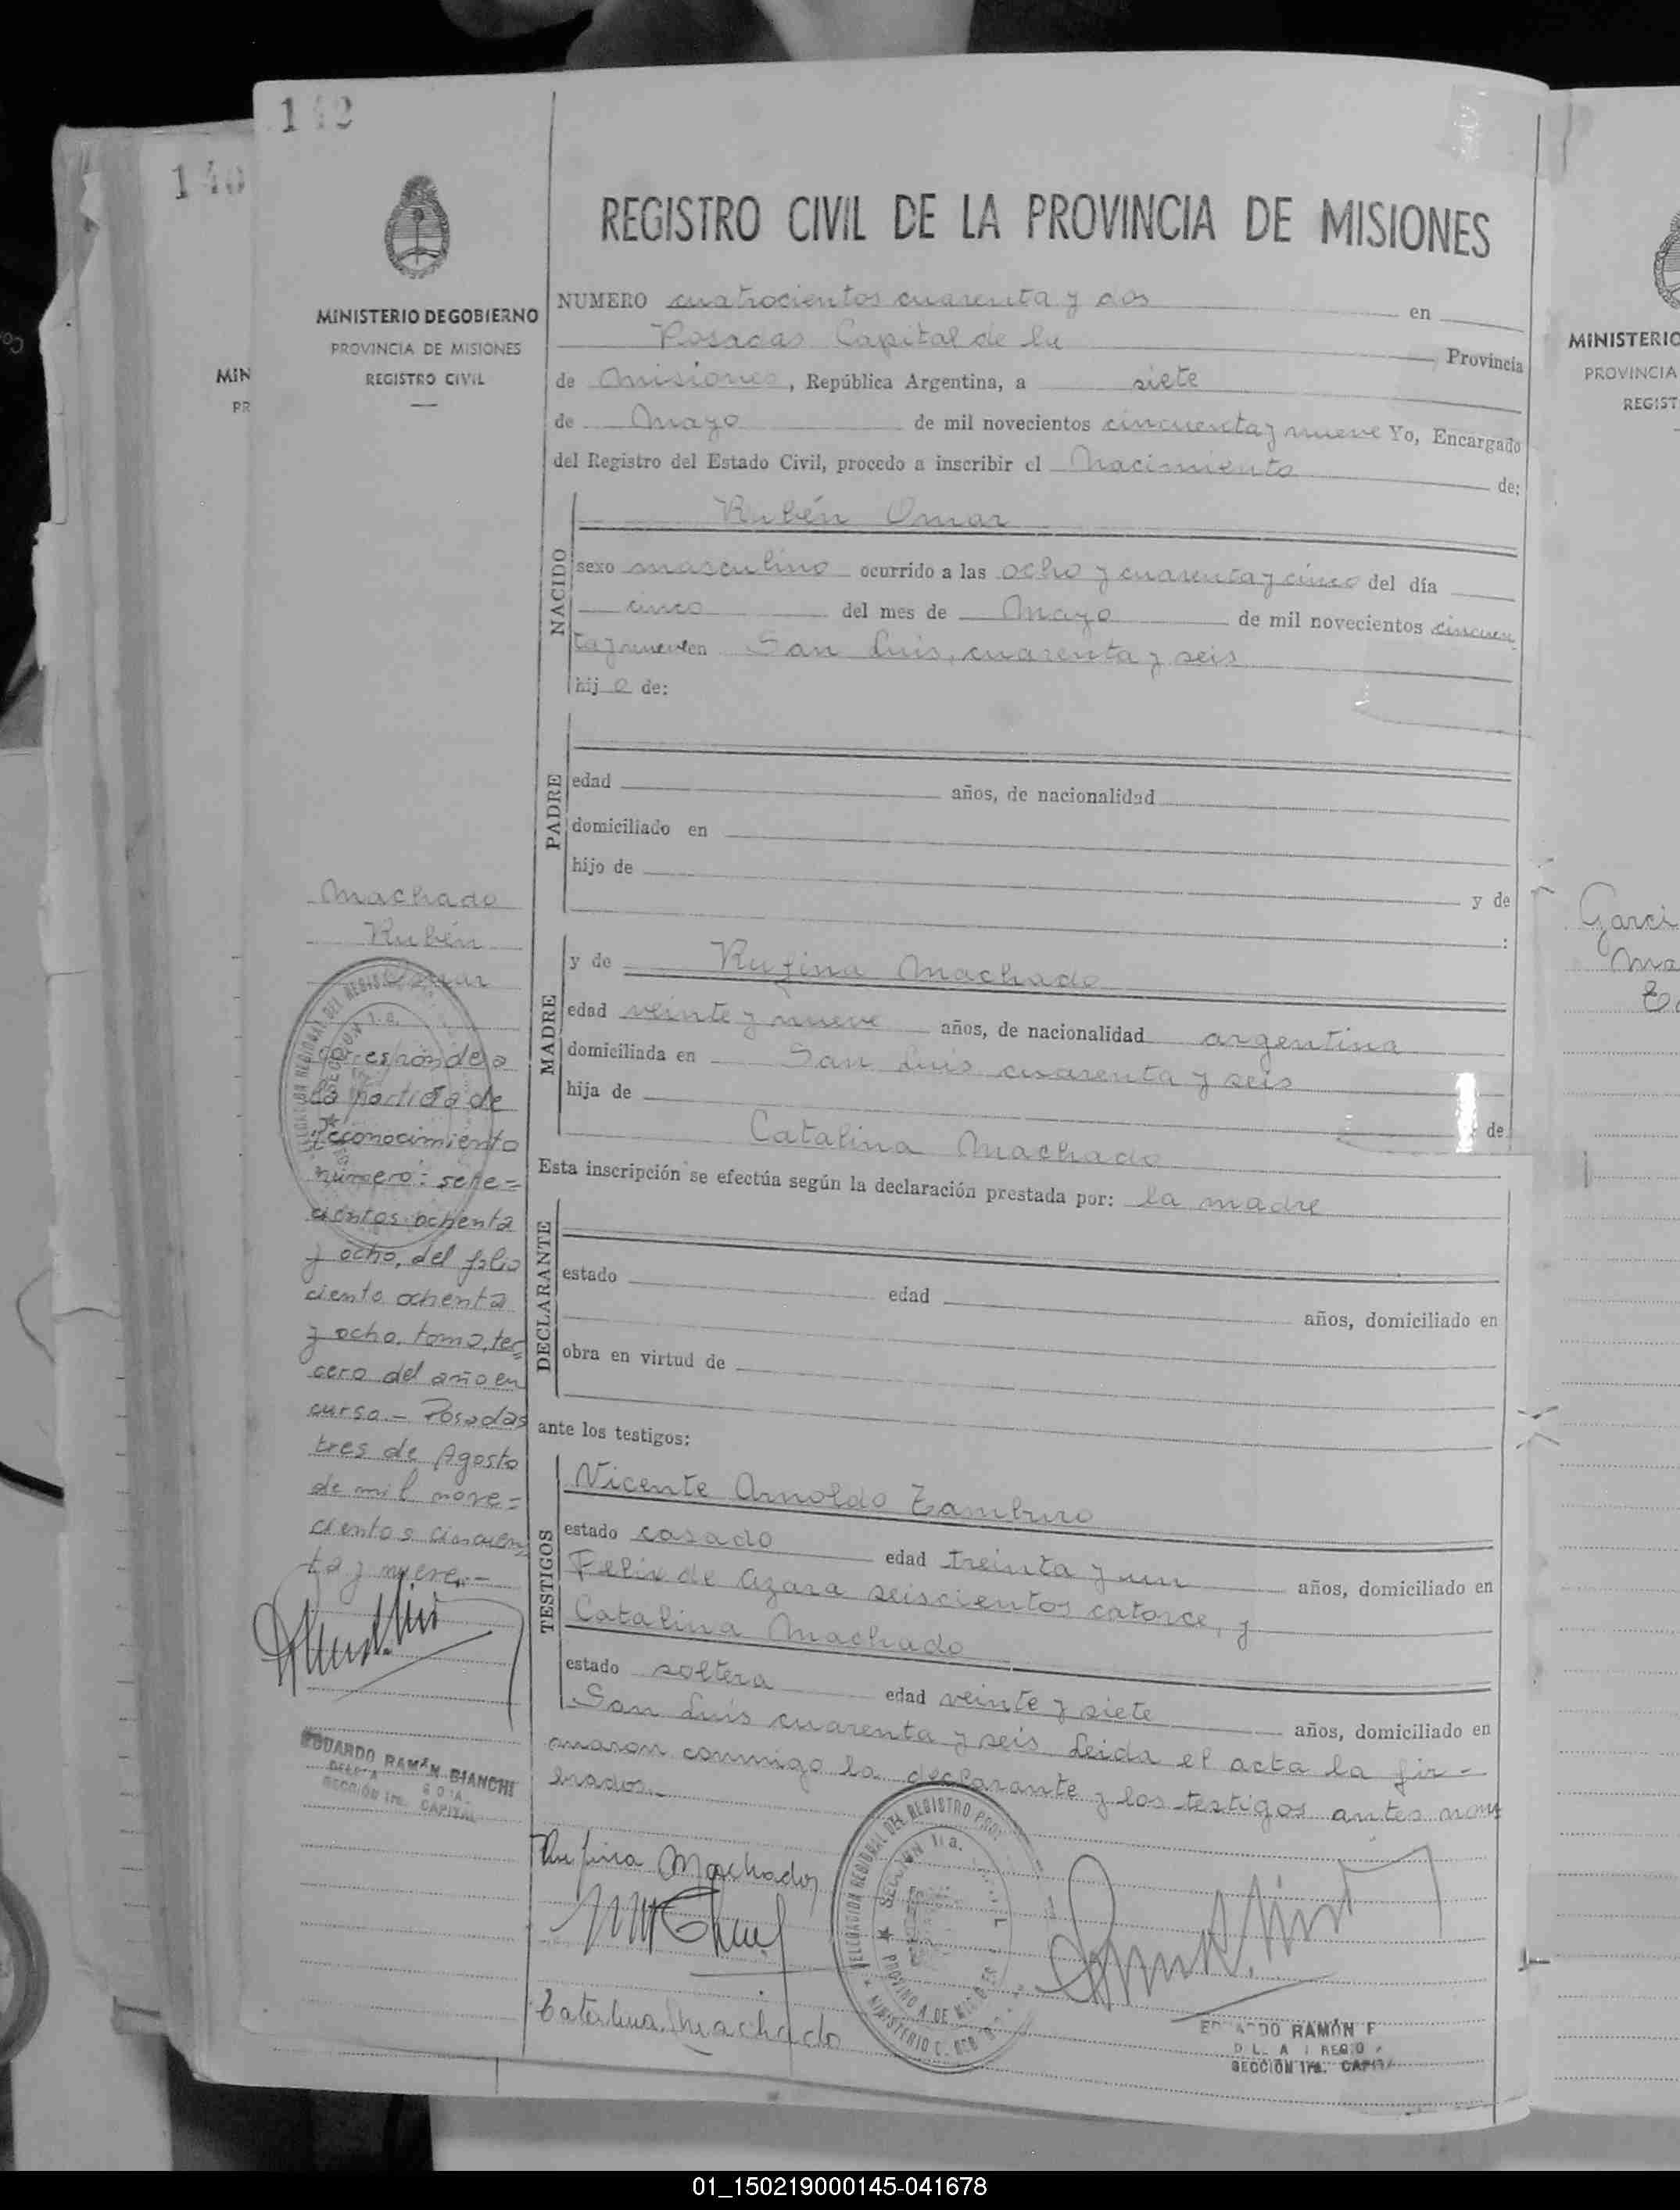 142
140
REGISTRO CIVIL DE LA PROVINCIA DE MISIONES
MINISTERIO DE GOBIERNO
PROVINCIA DE MISIONES
REGISTRO CIVIL
NUMERO cuatrocientos cuarenta y dos en
Posadas Capital de la Provincia
de Misiones, República Argentina, a siete
de Mayo de mil novecientos cincuenta y nueve Yo, Encargado
del Registro del Estado Civil, procedo a inscribir el Nacimiento de:
NACIDO
Rubén Omar
sexo masculino ocurrido a las ocho y cuarenta y cinco del día
cinco del mes de Mayo de mil novecientos cincuen
ta y nueve en San Luis, cuarenta y seis
hijo de:
PADRE
edad años, de nacionalidad
domiciliado en
hijo de y de
:
MADRE
y de Rufina Machado
edad veinte y nueve años, de nacionalidad argentina
domiciliada en San Luis cuarenta y seis
hija de de
Catalina Machado
Esta inscripción se efectúa según la declaración prestada por: la madre
DECLARANTE
estado edad años, domiciliado en
obra en virtud de
ante los testigos:
TESTIGOS
Vicente Arnoldo Zamburo
estado casado edad treinta y un años, domiciliado en
Felix de Azara seiscientos catorce, y
Catalina Machado
estado soltera edad veinte y siete años, domiciliado en
San Luis cuarenta y seis. Leida el acta la fir-
maron conmigo la declarante y los testigos antes nom
brados.-
Rufina Machado
Catalina Machado
Machado
Rubén
Omar
Corresponde a
la partida de
reconocimiento
número: sete=
cientos ochenta
y ocho, del folio
ciento ochenta
y ocho, tomo, ter=
cero del año en
curso.- Posadas
tres de Agosto
de mil nove=
cientos cincuen=
ta y nueve.-
EDUARDO RAMÓN BIANCHI
SECCIÓN 1ra. CAPITAL
DELEGACION REGIONAL DEL REGISTRO PROV
SECCION 1ra.
PROVINCIA DE MISIONES
RAMÓN
SECCIÓN 1ra. CAPITAL
MIN
PR
MINISTERIO
PROVINCIA
REGIST
Garci
Ma
01_150219000145-041678